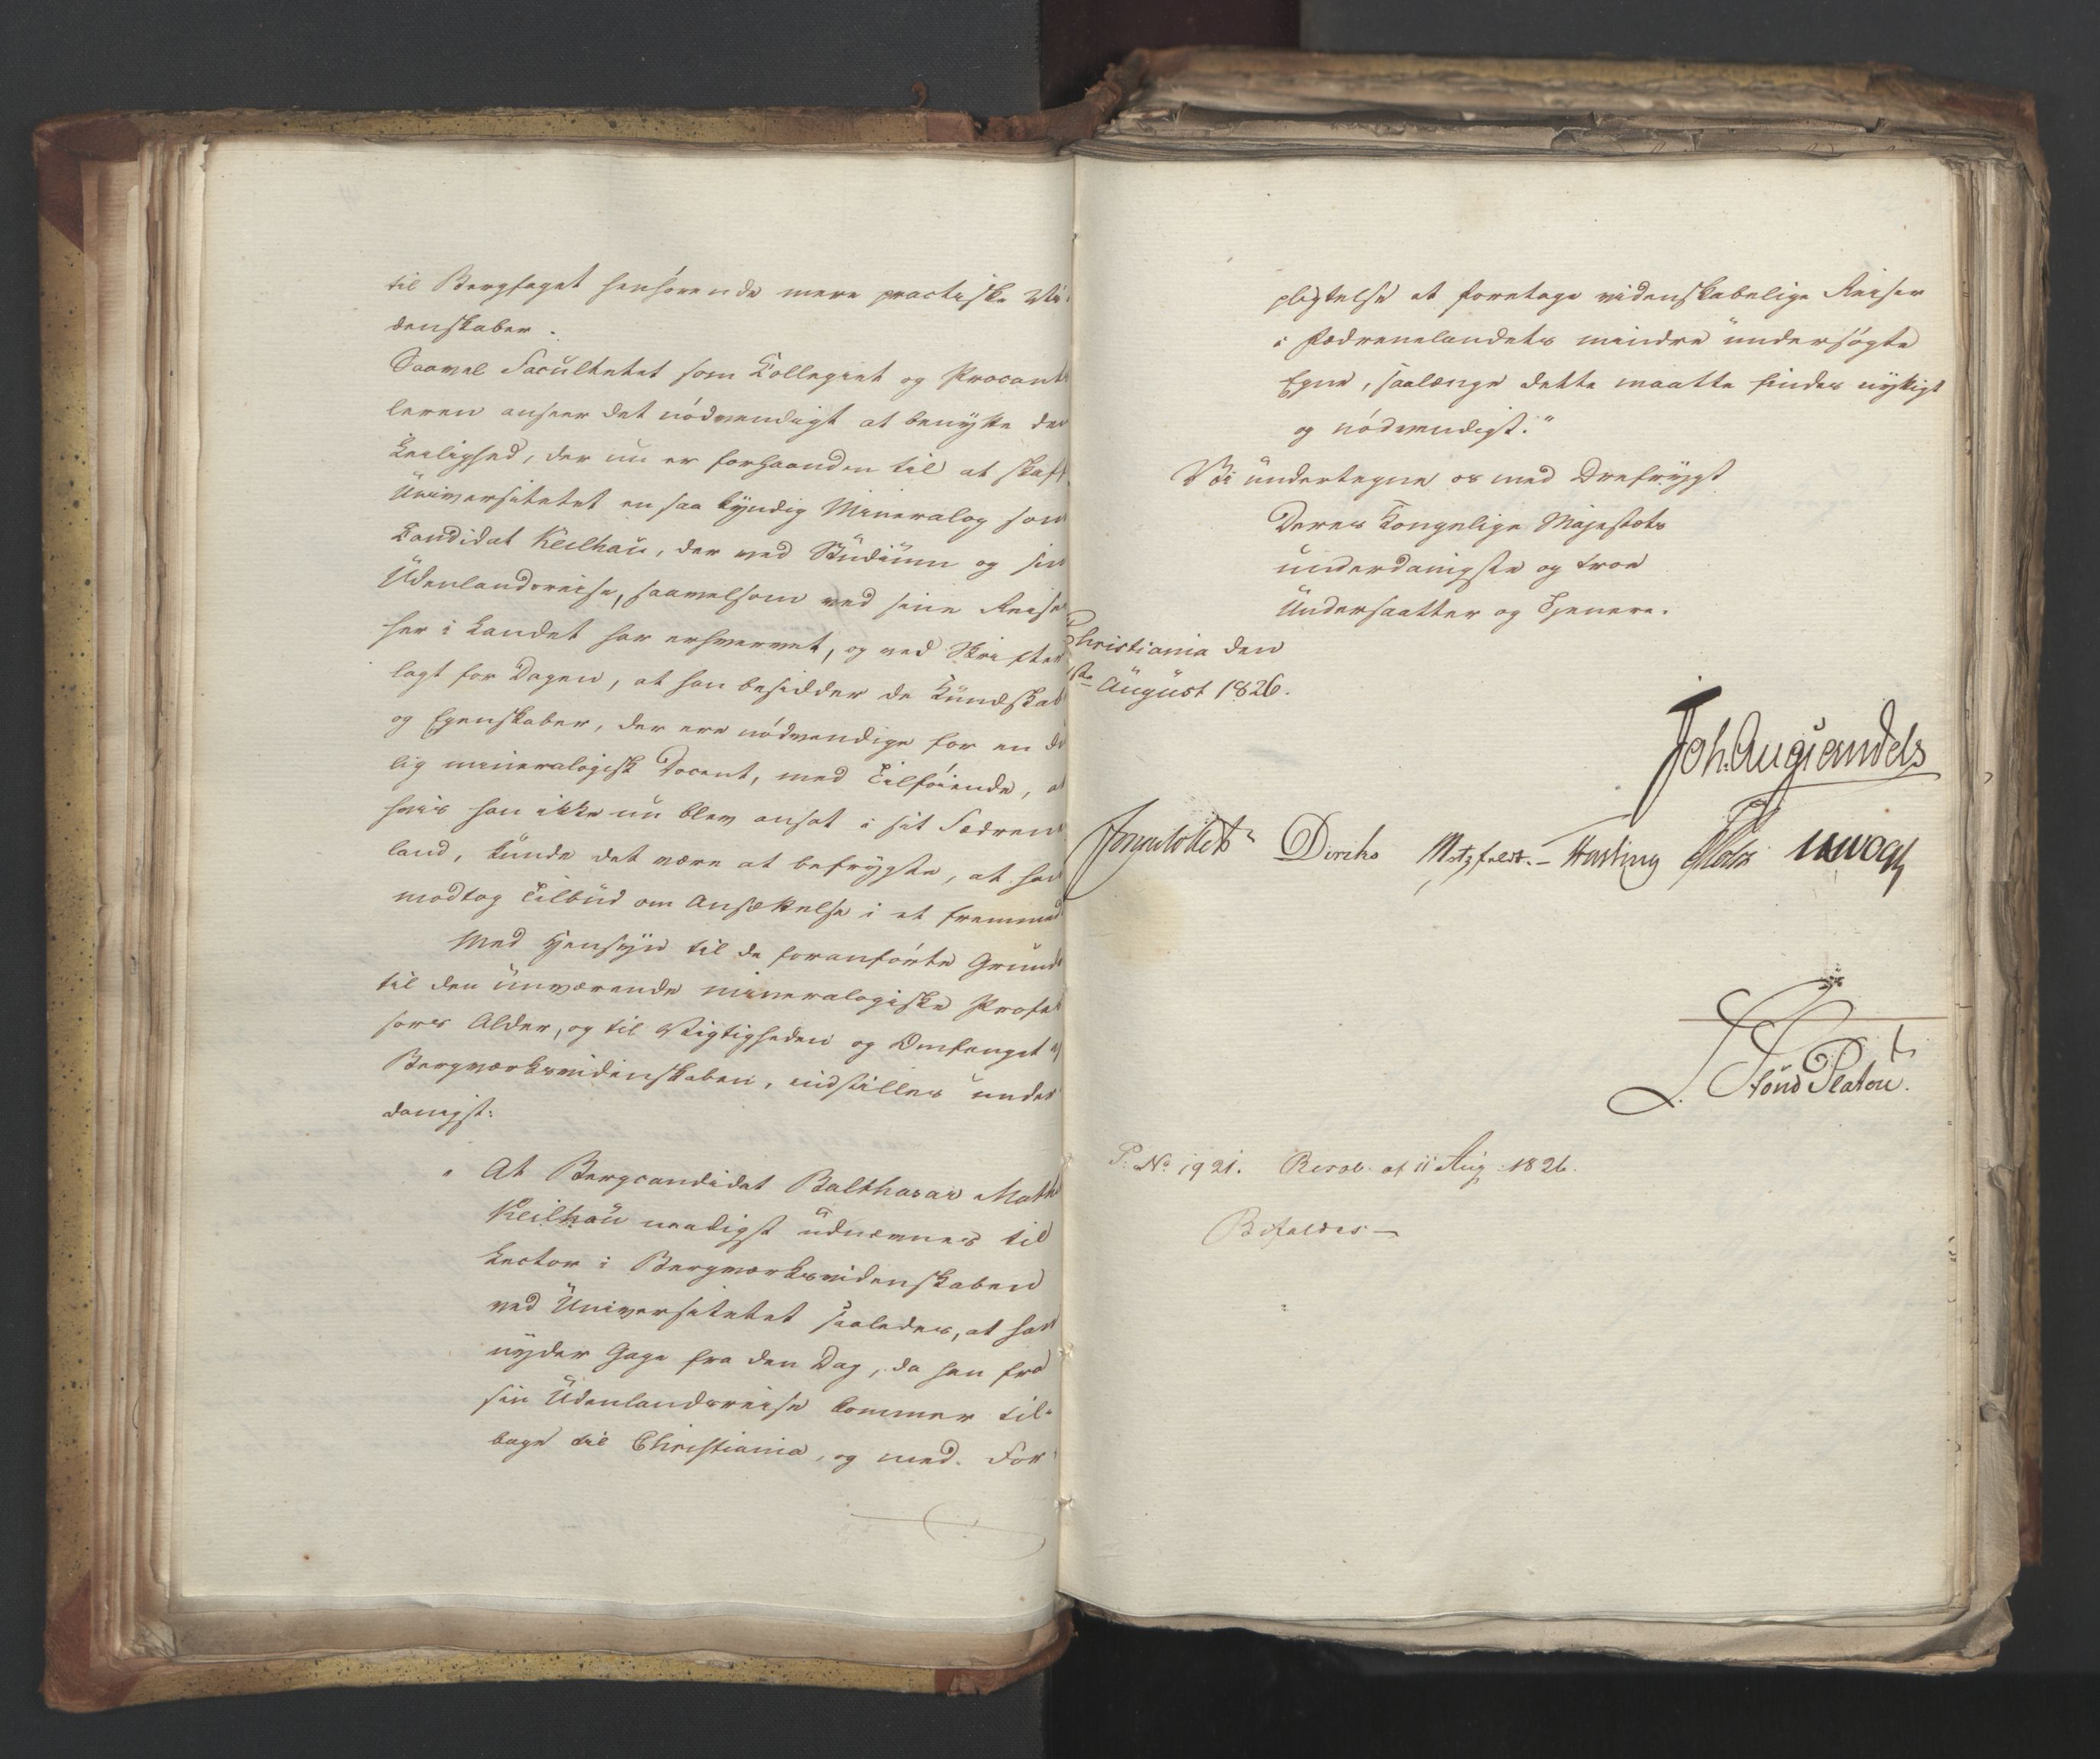 til Bergfaget henhørende mere practiske Vi-
denskaber.
Saavel Facultetet som Collegiet og Procants
leren anseer det nödvendigt at benytte den
Leilighed, der nu er forhaanden til at skaff
Universitetet en saa kyndig Mineralog som
Candidat Keilhau, der ved Studium og sin
Udenlandsreise, saavelsom ved sine Reiser
her i Landet har erhvervet, og ved Skrifter
lagt for Dagen, at han besidder de Kundskab
og Egenskaber, der ere nödvendige for en dü
lig mineralogisk Docent, med Tilföiende, at
hvis han ikke nu blev ansat i sit Fædrene
land, kunde det være at befrygte, at han
modtog Tilbud om Ansættelse i et fremmed
Med Hensyn til de foranförte Grunde
til den nuværende mineralogiske Profes
sors Alder, og til Vigtigheden og Omfanget af
Bergværksvidenskaben, indstilles under
danigst:
" At Bergcandidat Balthazar Math
Keilhau naadigst udnævnes til
Lector i Bergværksvidenskaben
ved Universitetet saaledes, at han
nyder Gage fra den Dag, da han fra
sin Udenlandsreise kommer til-
bage til Christiania, og med For-
pligtelse at foretage videnskabelige Reiser
i Fædrenelandets mindre undersögte
Egne, saalænge dette maatte findes nyttigt
og nödvendigt."
Vi undertegne os med Ærefrygt
Deres Kongelige Majestæts
underdanigste og troe
Undersaatter og Tjenere.
Christiania den
1ste August 1826.
Joh. Aug. Sandels
Jonas Collett Diriks Motzfeldt. Hasting
L. Stoud Platou.
P. No 1921. Resol. af 11 Aug. 1826.
Bifaldes